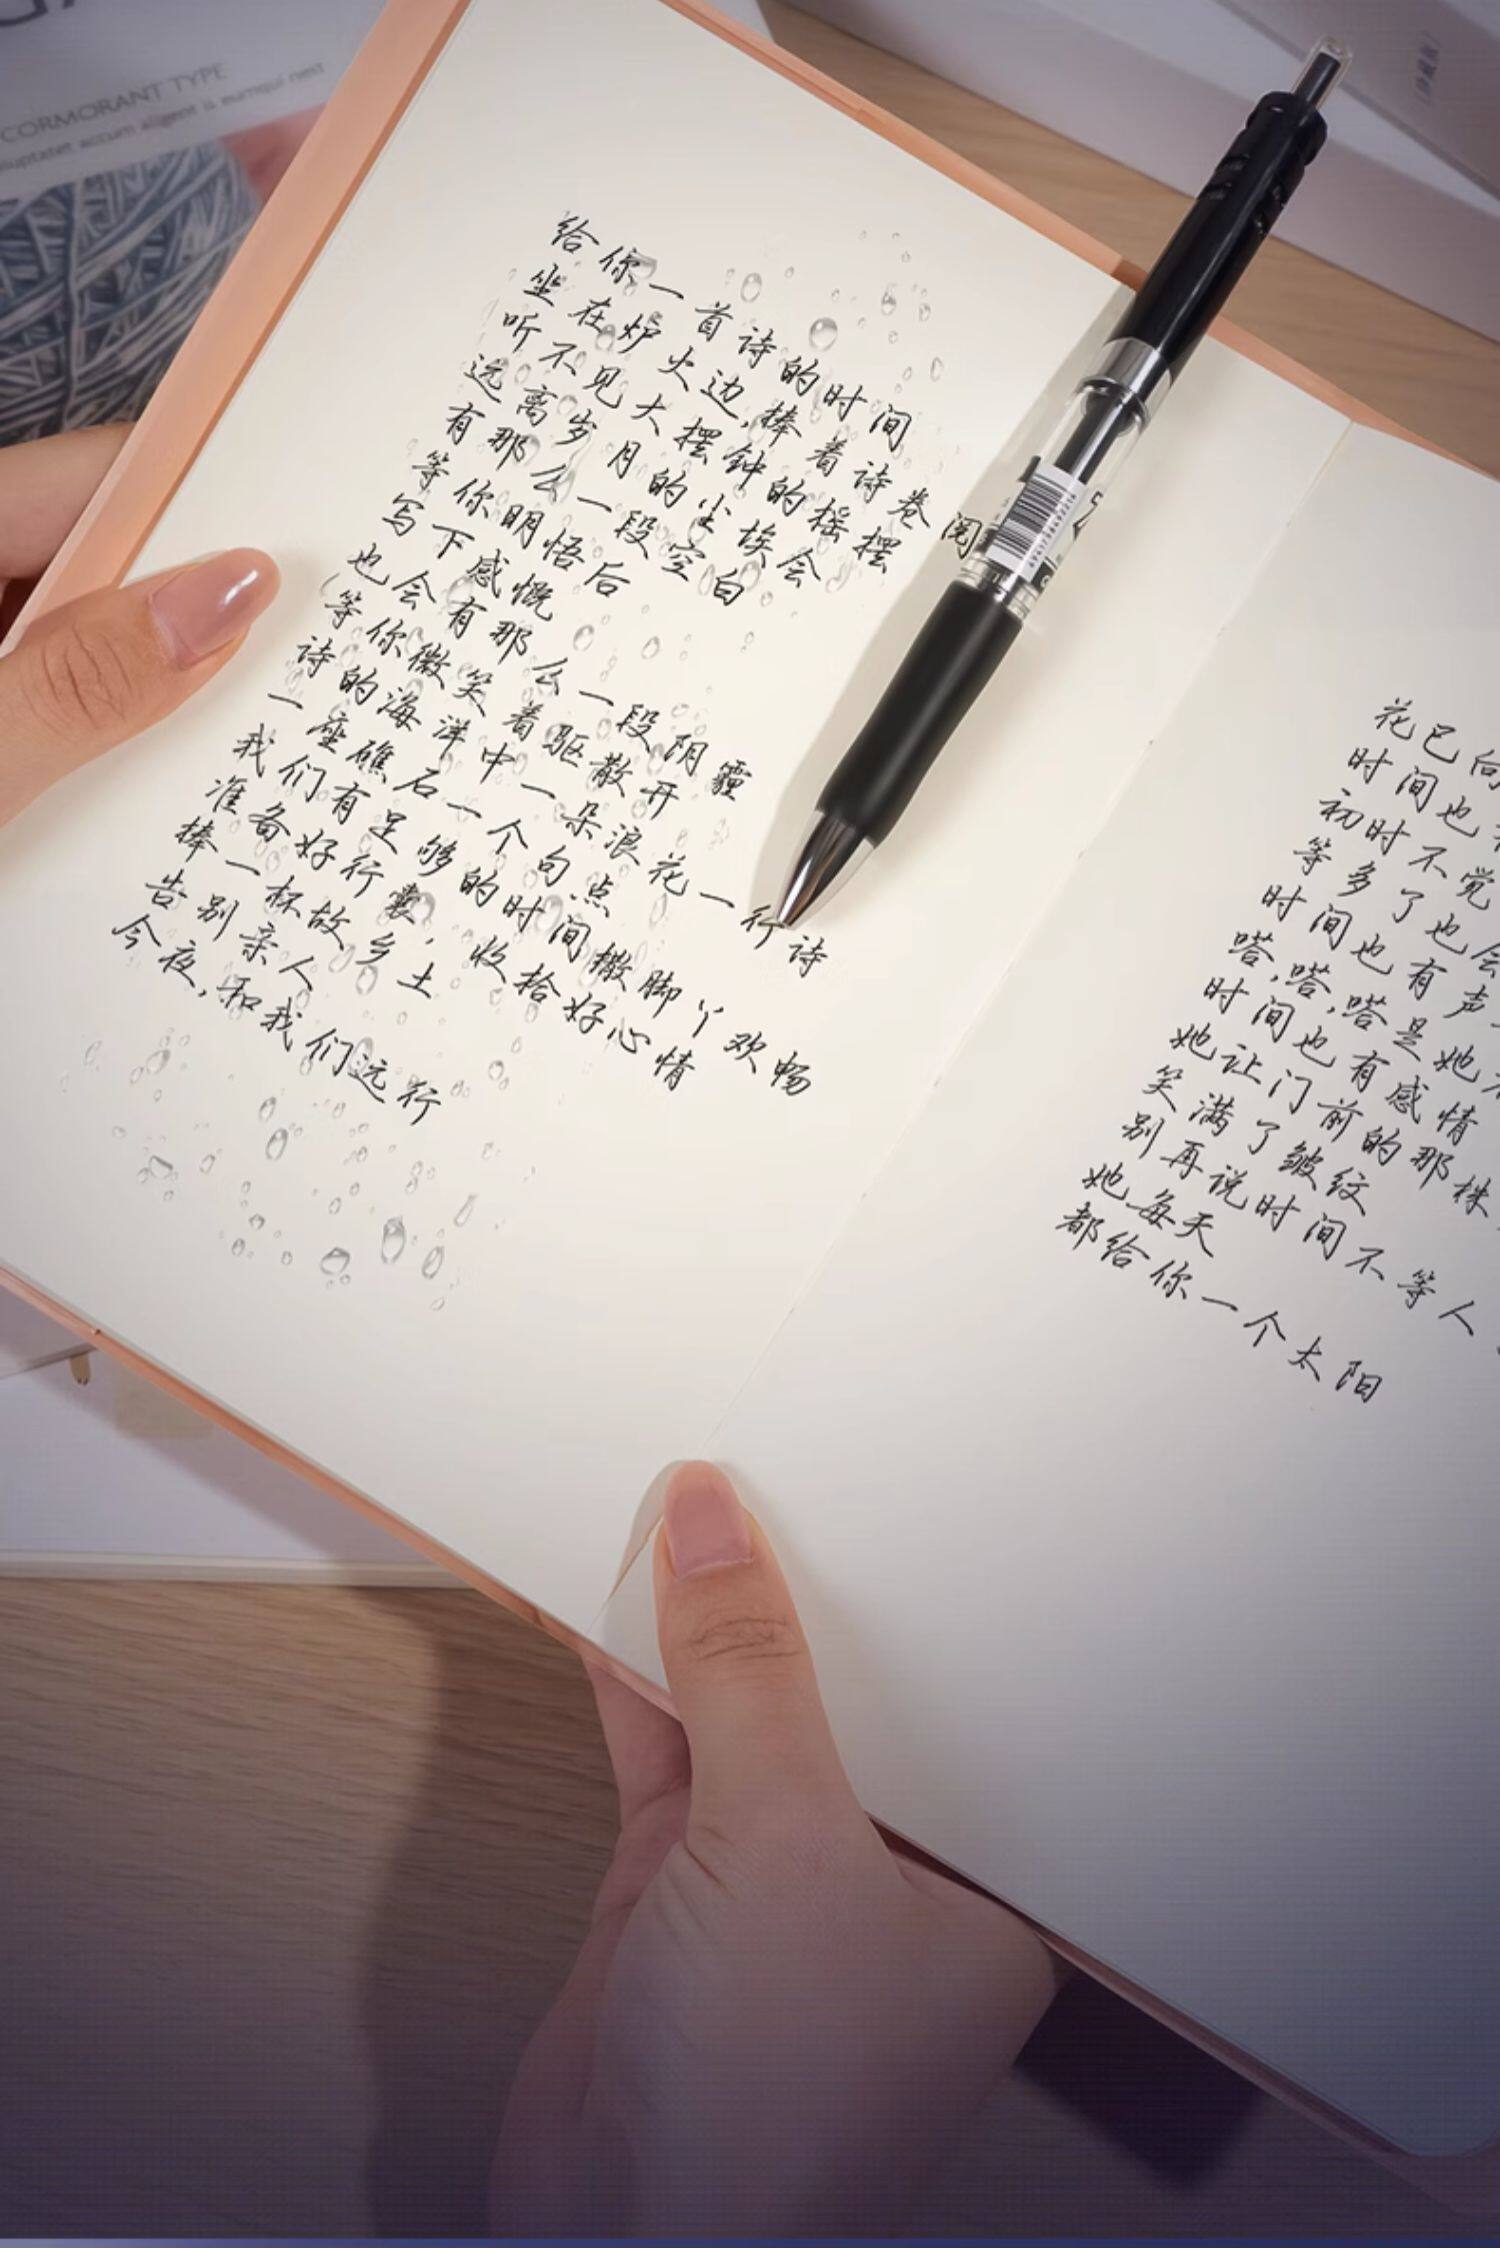 CORMORANT TYPE
accum aligent is eumqui nest
给你一首诗的时间
坐在炉火边,捧着诗卷阅
听不见大摆钟的摇摆
远离岁月的尘埃会
有那么一段空白
等你明悟后
写下感慨
也会有那么一段阴霾
(等你微笑着驱散开
诗的海洋中一朵浪花一行诗
一座礁石一个句点
我们有足够的时间撒脚丫欢畅
准备好行囊,收拾好心情
捧一杯故乡土
告别亲人
今夜,和我们远行
花已向
时间也
初时不觉
等多了也会
时间也有声
嗒,嗒,嗒是她
时间也有感情
她让门前的那株
笑满了皱纹
别再说时间不等人
她每天
都给你一个太阳